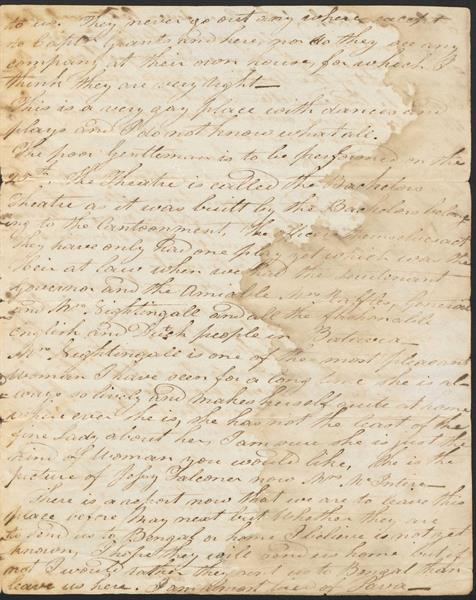 to us. They never go out any where except
to Capt Grants and here, nor do they see any
company at their own house, for which I
think they are very right—
This is a very gay place with dances and
plays and I do not know what all.
The poor Gentleman is to be performed on the
25th. The Theatre is called the Bachelors
Theatre as it was built by the Bachelors belong
ing to the Cantoonment. The
They have only had one play yet which was the
Heir at law when we had the Lieutenant
governor and the Amiable Mrs Raffles, General
and Mrs Nightingall and all the fashonable
English and Dutch people in Batavia—
Mrs Nightingale is one of the most pleasant
Woman I have seen for a long time she is al
ways so lively and makes herself quite at home
where ever she is, she has not the least of the
fine Lady about her, I am sure she is just the
kind of Woman you would like, She is the
picture of Jopy Falconer now Mrs
There is a report now that we are to leave this
place before May next but Whether they are
to send us to Bengal or home I believe is not yet
known, I hope they will send us home but if
not I would rather they sent us to Bengal than
leave us here. I am almost tired of Java—